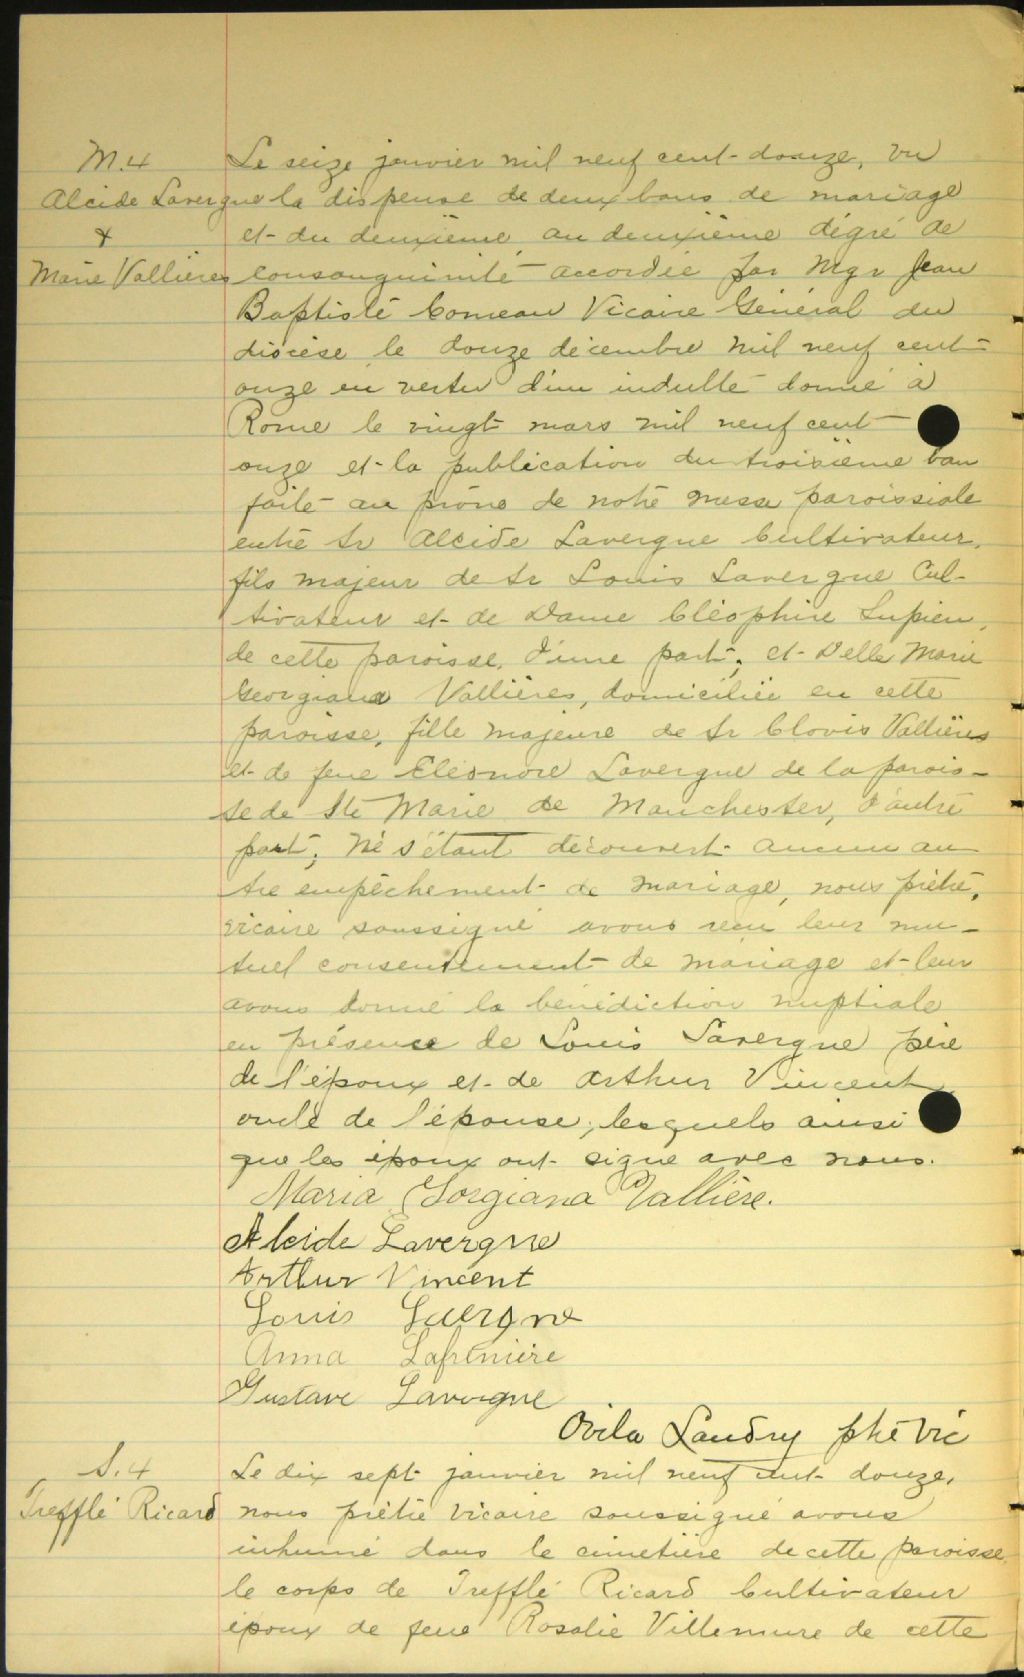 M.4
Alcide Lavergne
&
Marie Vallières
Le seize janvier mil neuf cent douze, vu
la dispense de deux bans de mariage
et du deuxième au deuxième dégré de
consanguinité accordée par Mgr Jean
Baptiste Comeau Vicaire Général du
diocèse le douze décembre mil neuf cent
onze en vertu d'un indulte donné à
Rome le vingt mars mil neuf cent
onze et la publication du troisième ban
faite au prône de notre messe paroissiale
entre Sr Alcide Lavergne Cultivateur,
fils majeur de Sr Louis Lavergne Cul-
tivateur et de Dame Cléophire Lupien,
de cette paroisse, d'une part; et Delle Marie
Georgiana Vallières, domiciliée en cette
paroisse, fille majeure de Sr Clovis Vallières
et de feue Eléonore Lavergne de la parois-
se de Ste Marie de Manchester, d'autre
part; Ne s'étant découvert aucun au
tre empêchement de mariage, nous prêtre,
vicaire soussigné avons reçu leur mu-
tuel consentement de mariage et leur
avons donné la bénédiction nuptiale
en présence de Louis Lavergne père
de l'époux et de Arthur Vincent
oncle de l'épouse; lesquels ainsi
que les époux ont signé avec nous.
Maria Gorgiana Vallière.
Alcide Lavergne
Arthur Vincent
Louis Laergne
Anna Lafrenière
Gustave Lavergne
Ovila Landry ptre vic
S.4
Trefflé Ricard
Le dix sept janvier mil neuf cent douze,
nous prêtre vicaire soussigné avons
inhumé dans le cimetière de cette paroisse
le corps de Trefflé Ricard Cultivateur
époux de feue Rosalie Villemure de cette